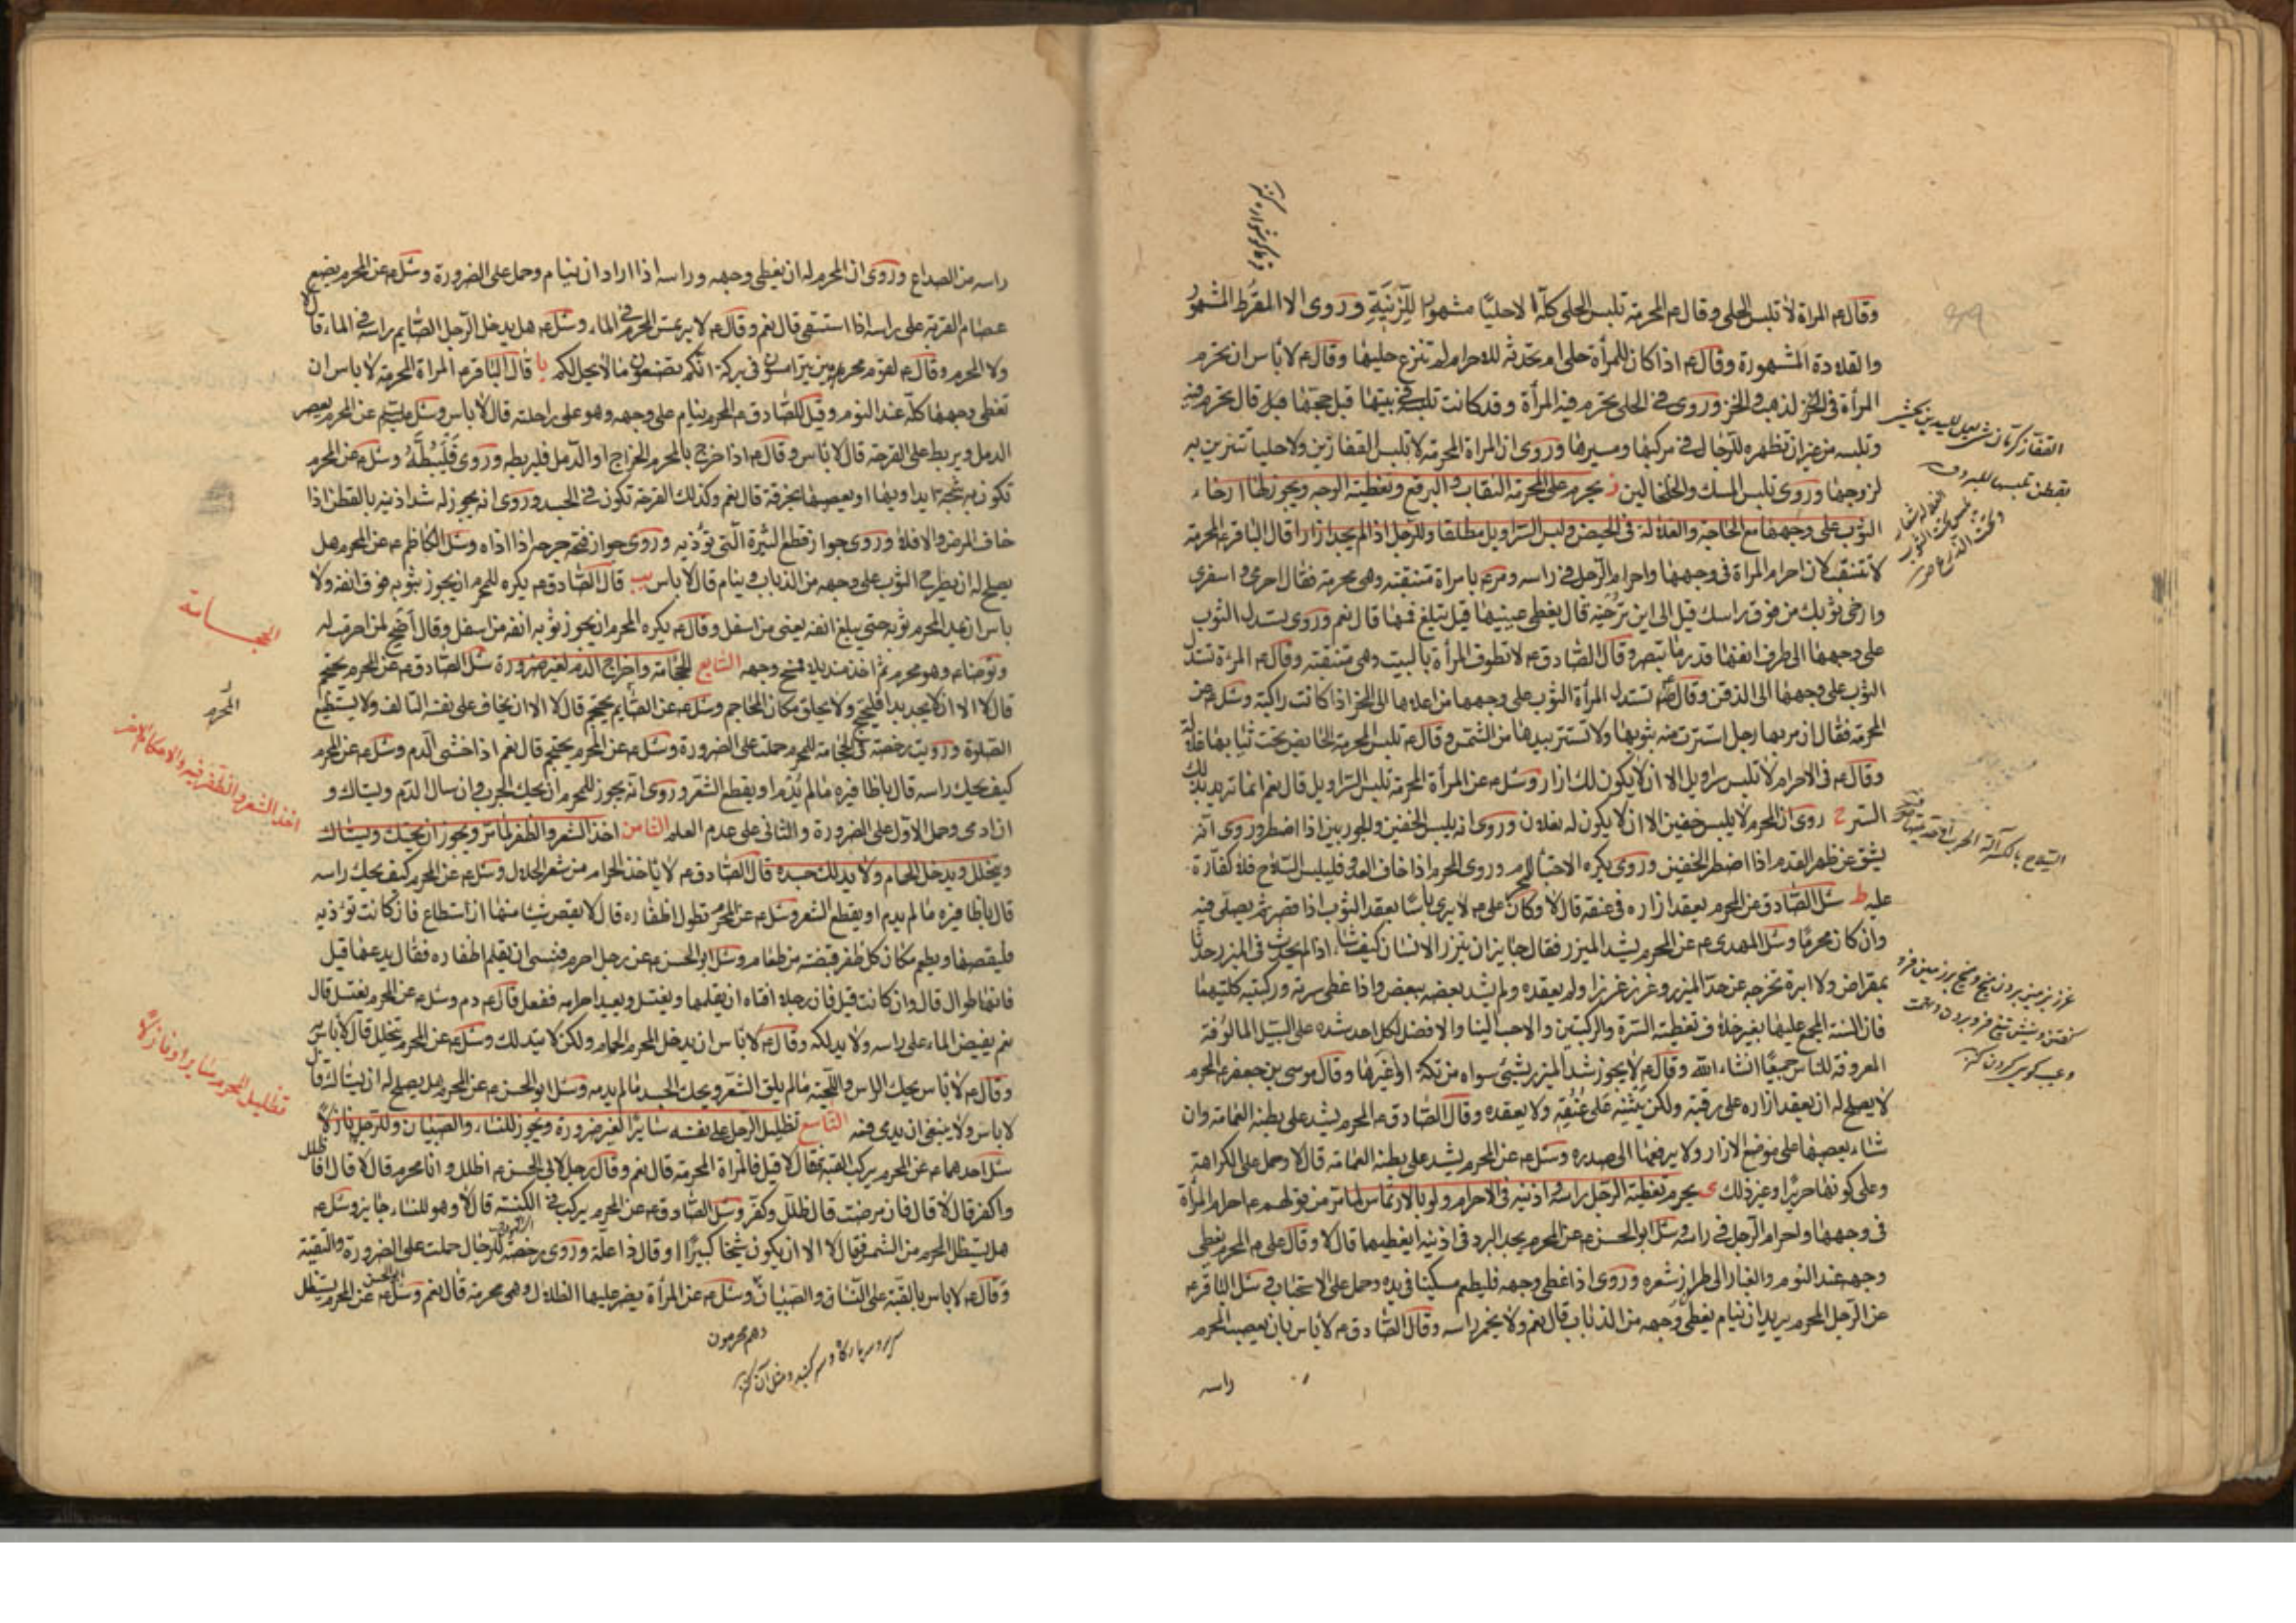 وقال ع المراة لا تلبس الحلى وقال ع المحرمة تلبس الحلى كله الا حليا مشهورا للزينة وروى الا المقرط المشهور
والقلادة المشهورة وقال ع اذا كان للمرأة حلى لم تحدثه للاحرام لم تنزع حليها وقال ع لا باس ان تحرم
المرأة فى الذهب والخز وروى فى الحلى تحرم فيه المرأة وقد كانت تلبسه فى بيتها قبل حجها قال تحرم فيه
وتلبسه من غير ان تظهره للرجال فى مركبها ومسيرها وروى ان المراة المحرمة لا تلبس القفازين ولا حليا تتزين به
لزوجها وروى تلبس المسك والخلخالين ز يحرم على المحرمة النقاب والبرقع وتغطية الوجه ويجوز لها ارخاء
الثوب على وجهها مع الحاجة والغلالة فى الحيض ولبس السراويل مطلقا وللرجل اذا لم يجد ازارا قال الباقر ع المحرمة
لا تتنقب لان احرام المراة فى وجهها واحرام الرجل فى راسه ومر ع بامراة متنقبة وهى محرمة فقال احرمى واسفرى
وارخى ثوبك من فوق راسك قيل الى اين ترخيه قال يغطى عينيها قيل تبلغ فمها قال نعم وروى تسدل الثوب
على وجهها الى طرف انفها قدر ما تبصر وقال الصادق ع لا تطوف المرأة بالبيت وهى متنقبة وقال ع المرءة تسدل
الثوب على وجهها الى الذقن وقال ع تسدل المرأة الثوب على وجهها من اعلاها الى النحر اذا كانت راكبة وسئل ع عن
المحرمة فقال ان مر بها رجل استترت منه بثوبها ولا تستتر بيدها من الشمس وقال ع تلبس المحرمة الحايض تحت ثيابها غلالة
وقال ع فى الاحرام لا تلبس سراويل الا ان لا يكون لك ازار وسئل ع عن المرأة المحرمة تلبس السراويل قال نعم انما تريد بذلك
الستر ح روى ان المحرم لا يلبس خفين الا ان لا يكون له نعلان وروى انه يلبس الخفين والجوربين اذا اضطر وروى انه
يشق عن ظهر القدم اذا اضطر للخفين وروى يكره الاحتباء للمحرم وروى المحرم اذا خاف العدو فليلبس السلاح فلا كفارة
عليه ط سئل الصادق عن المحرم يعقد ازاره فى عنقه قال لا وكان على ع لا يرى بأسا بعقد الثوب اذا قصر ثم يصلى فيه
وان كان محرما وسئل المهدى ع عن المحرم يشد الميزر فقال جايز ان يتزر الانسان كيف شاء اذا لم يحدث فى الميزر حدثا
بمقراض ولا ابرة تخرجه عن حد الميزر وغرزه غرزا ولم يعقده ولم يشد بعضه ببعض واذا غطى سرته وركبتيه كليهما
فان السنة المجمع عليها بغير خلاف تغطية السرة والركبتين والاحب الينا والافضل لكل احد شده على السبيل المالوفة
المعروفة للناس جميعا انشاء الله وقال ع لا يجوز شد الميزر بشئ سواه من تكة او غيرها وقال موسى بن جعفر ع المحرم
لا يصلح له ان يعقد ازاره على رقبته ولكن يثنيه على عنقه ولا يعقده وقال الصادق ع المحرم يشد على بطنه العمامة وان
شاء يعصبها على موضع الازار ولا يرفعها الى صدره وسئل ع عن المحرم يشد على بطنه العمامة قال لا وحمل على الكراهة
وعلى كونها حريرا وغير ذلك ى يحرم تغطية الرجل راسه واذنيه فى الاحرام ولو بالارتماس لما مر من قولهم ع احرام المرأة
فى وجهها واحرام الرجل فى راسه وسئل ابو الحسن ع عن المحرم يجد البرد فى اذنيه ايغطيهما قال لا وقال على ع المحرم يغطى
وجهه عند النوم والغبار الى طرار شعره وروى اذا غطى وجهه فليطعم مسكينا فى يده وحمل على الاستحباب سئل الباقر ع
عن الرجل المحرم يريد ان ينام يغطى وجهه من الذباب قال نعم ولا يخمر راسه وقال الصادق ع لا باس بان يعصب المحرم
راسه
راسه من الصداع وروى ان المحرم له ان يغطى وجهه وراسه اذا اراد ان ينام وحمل على الضرورة وسئل ع عن المحرم يضع
عصام القربة على راسه اذا استسقى قال نعم وقال ع لا يرتمس المحرم فى الماء وسئل ع هل يدخل الرجل الصايم راسه فى الماء قال لا
ولا المحرم وقال ع لقوم محرمين يترامسون فى بركة انكم تصنعون ما لا يحل لكم يا قال الباقر ع المراة المحرمة لا باس ان
تغطى وجهها كله عند النوم وقيل للصادق ع المحرم ينام على وجهه وهو على راحلته قال لا باس وسئل ع عن المحرم يعصر
الدمل ويربط على القرحة قال لا باس وقال ع اذا خرج بالمحرم الخراج او الدمل فليربطه وروى فليبطه وسئل ع عن المحرم
تكون به شجة ايداويها او يعصبها بخرقة قال نعم وكذلك القرحة تكون فى الجسد وروى انه يجوز له شد اذنيه بالقطن اذا
خاف المرض والا فلا وروى جواز قطع البثرة التى تؤذيه وروى جواز فتح جرحه اذا اذاه وسئل الكاظم ع عن المحرم هل
يصلح له ان يطرح الثوب على وجهه من الذباب وينام قال لا باس يب قال الصادق ع يكره للمحرم ان يجوز بثوبه فوق انفه ولا
باس ان يمد المحرم ثوبه حتى يبلغ انفه يعنى من اسفل وقال ع يكره المحرم ان يجوز ثوبه انفه من اسفل وقال اضح لمن احرمت له
وتوضا ع وهو محرم ثم اخذ منديلا فمسح وجهه السابع الحجامة واخراج الدم لغير ضرورة سئل الصادق ع عن المحرم يحتجم
قال لا الا ان لا يجد بدا فليحتجم ولا يحلق مكان المحاجم وسئل ع عن الصايم يحتجم قال لا الا ان يخاف على نفسه التلف ولا يستطيع
الصلوة ورويت رخصة فى الحجامة للمحرم حملت على الضرورة وسئل ع عن المحرم يحتجم قال نعم اذا خشى الدم وسئل ع عن المحرم
كيف يحك راسه قال باظافيره ما لم يدم او يقطع الشعر وروى انه يجوز للمحرم ان يحك الجرب وان سال الدم ويستاك و
ان ادمى وحمل الاول على الضرورة والثانى على عدم العلم الثامن اخذ الشعر والظفر لما مر ويجوز ان يحك ويستاك
ويتخلل ويدخل الحمام ولا يدلك جسده قال الصادق ع لا ياخذ الحرام من شعر الحلال وسئل ع عن المحرم كيف يحك راسه
قال باظافيره ما لم يدم او يقطع الشعر وسئل ع عن المحرم تطول اظفاره قال لا يقص شيئا منها ان استطاع فان كانت تؤذيه
فليقصها ويطعم مكان كل ظفر قبضة من طعام وسئل ابو الحسن ع عن رجل احرم فنسى ان يقلم اظفاره فقال يدعها قيل
فانها طوال قال وان كانت قيل فان رجلا افتاه ان يقلمها ويغتسل ويعيد احرامه ففعل قال ع دم وسئل ع عن المحرم يغتسل قال
نعم يفيض الماء على راسه ولا يدلكه وقال ع لا باس ان يدخل المحرم الحمام ولكن لا يتدلك وسئل ع عن المحرم يتخلل قال لا باس
وقال ع لا باس بحك الراس واللحية ما لم يلق الشعر وبحك الجسد ما لم يدمه وسئل ابو الحسن ع عن المحرم هل يصلح له ان يستاك قال
لا باس ولا ينبغى ان يدمى فمه التاسع تظليل الرجل على نفسه سايرا لغير ضرورة ويجوز للنساء والصبيان وللرجل نازلا
سئل احدهما ع عن المحرم يركب القبة فقال لا قيل فالمرأة المحرمة قال نعم وقال رجل لابى الحسن ع اظلل وانا محرم قال لا قال افاظلل
واكفر قال لا قال فان مرضت قال ظلل وكفر وسئل الصادق ع عن المحرم يركب فى الكنيسة قال لا وهو للنساء جايز وسئل ع
هل يستظل المحرم من الشمس فقال لا الا ان يكون شيخا كبيرا او قال ذا علة وروى رخصة للرجال حملت على الضرورة والتقية
وقال ع لا باس بالقبة على النساء والصبيان وسئل ع عن المرأة يضرب عليها الظلال وهى محرمة قال نعم وسئل ابو الحسن ع عن المحرم يستظل
وهم محرمون
الحجامة
المحرم
اخذ الشعر والظفر فيه والاحكام الاخر
تظليل المحرم سايرا و نازلا